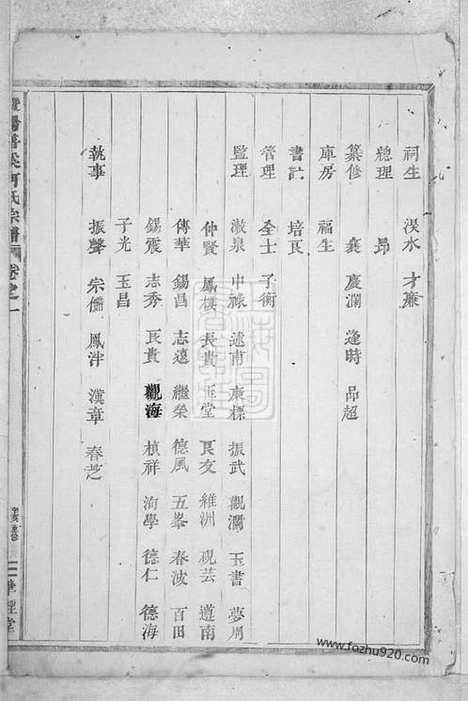 祠生 淏水 才廉
總理 昻
纂修 襄 慶瀾 逢時 品超
庫房 福生
書記 培良
管理 全士 子衡
監理 澉泉 中祿 遠南 康標 振武 觀瀾 玉書 夢周
仲賢 鳳模 長貴 玉堂 良友 維洲 硯芸 道南
傳華 錫昌 志遠 繼榮 德風 五峯 春波 百田
錫震 志秀 良貴 觀海 楨祥 洵學 德仁 德海
子光 玉昌
執事 振聲 宗儒 鳳泮 漢章 春芝
氏宗譜 卷之一
堂
www.fozhu920.com